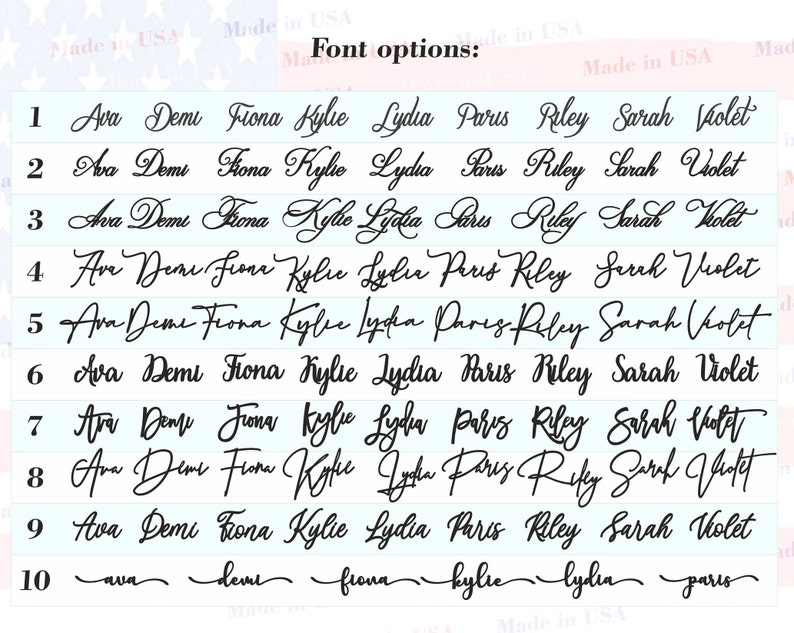 Made in USA Made in USA
Font options:
Made in USA Made in USA
1 Ava Demi Fiona Kylie Lydia Paris Riley Sarah Violet
2 Ava Demi Fiona Kylie Lydia Paris Riley Sarah Violet
3 Ava Demi Fiona Kylie Lydia Paris Riley Sarah Violet
4 Ava Demi Fiona Kylie Lydia Paris Riley Sarah Violet
5 Ava Demi Fiona Kylie Lydia Paris Riley Sarah Violet
6 Ava Demi Fiona Kylie Lydia Paris Riley Sarah Violet
7 Ava Demi Fiona Kylie Lydia Paris Riley Sarah Violet
8 Ava Demi Fiona Kylie Lydia Paris Riley Sarah Violet
9 Ava Demi Fiona Kylie Lydia Paris Riley Sarah Violet
10 ava demi fiona kylie lydia paris
Made in USA Made in USA